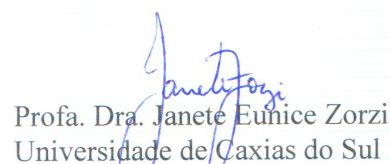 Janete Zorzi
Profa. Dra. Janete Eunice Zorzi
Universidade de Caxias do Sul